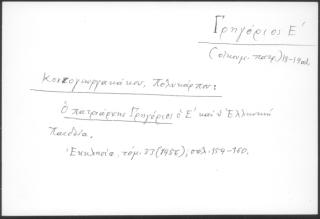 Γρηγόριος Ε'
(οἰκουμ. πατρ.) 18-19 αἰ.
Κοντογιωργακάκου, Πολυκάρπου:
Ὁ πατριάρχης Γρηγόριος ὁ Ε' καὶ ἡ Ἑλληνικὴ
Παιδεία.
Ἐκκλησία, τόμ. 33 (1956), σελ. 159-160.